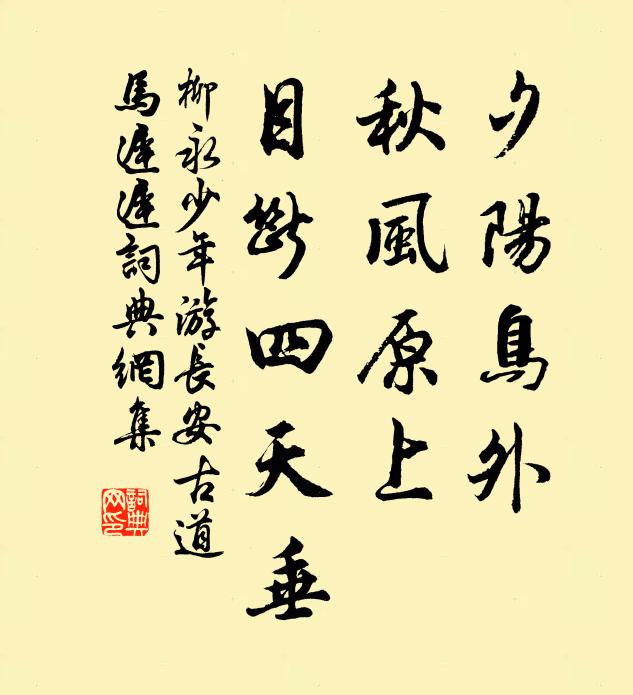 夕陽鳥外
秋風原上
目斷四天垂
柳永少年游長安古道
馬遲遲詞典網集
詞典網印